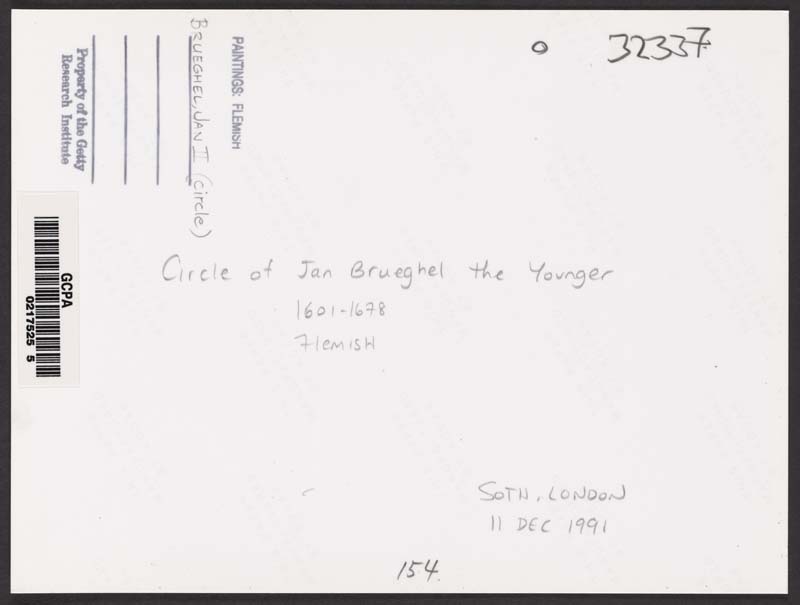 32337.
PAINTINGS: FLEMISH
BRUEGHEL, JAN II (circle)
Property of the Getty
Research Institute
GCPA
0217525 5
Circle of Jan Brueghel the Younger
1601-1678
Flemish
SOTH, LONDON
11 DEC 1991
154.